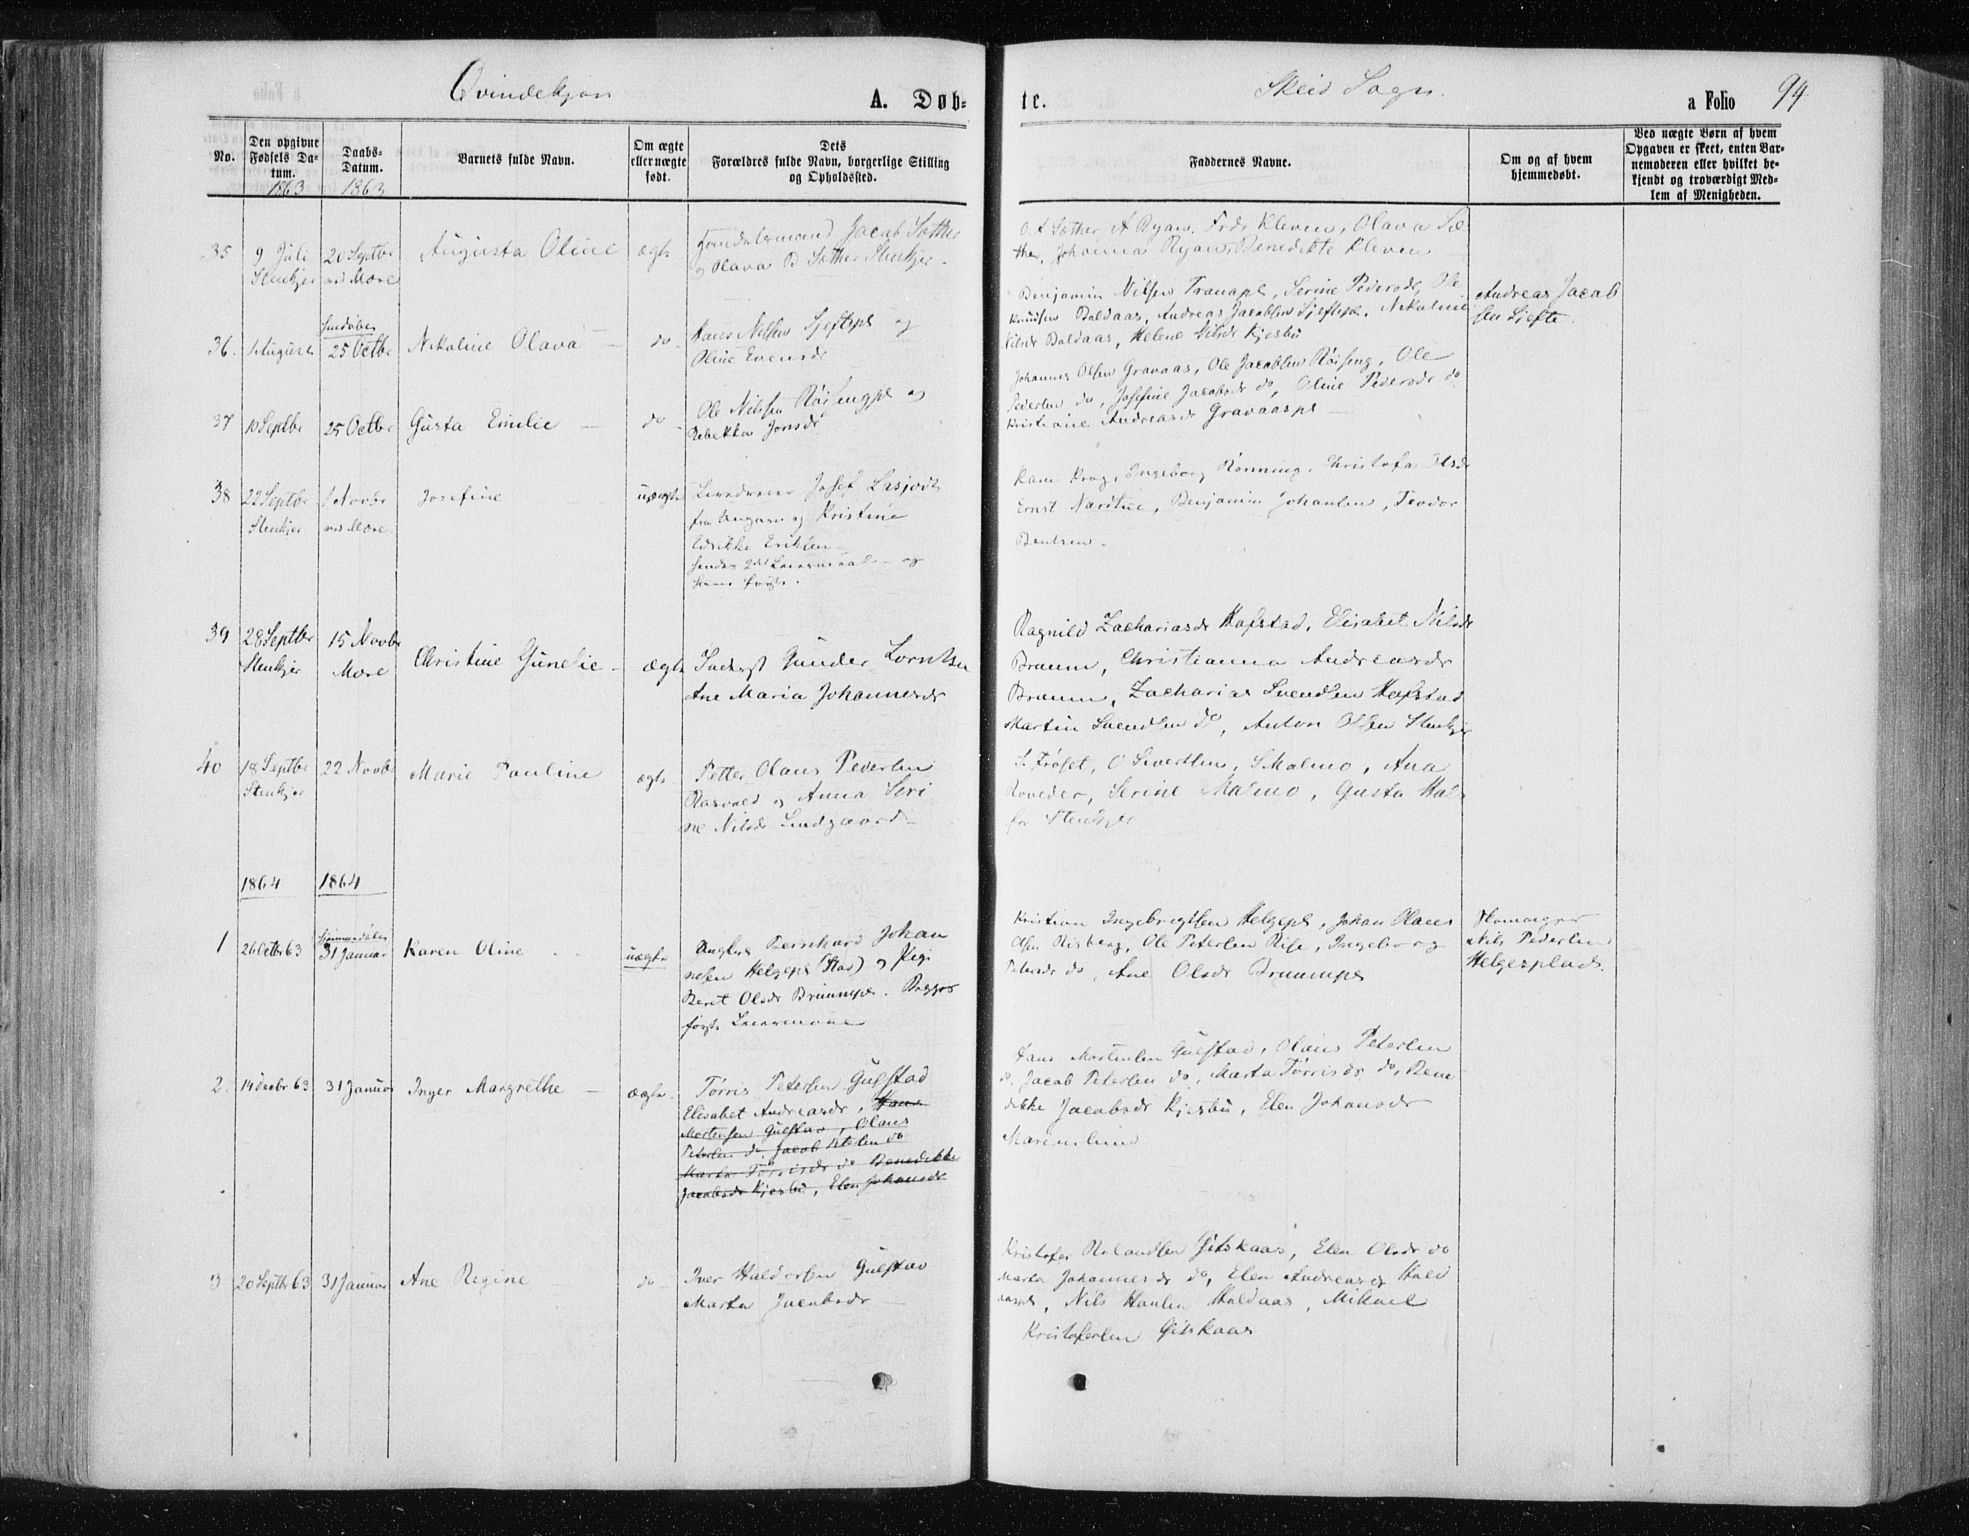 Qvindekjøn
A. Døb-
te.
Skeid Sogn.
a Folio 94
No.
Den opgivne Fødsels Datum. 1863
Daabs-Datum. 1863
Barnets fulde Navn.
Om ægte eller uægte født.
Dets Forældres fulde Navn, borgerlige Stilling og Opholdssted.
Faddernes Navne.
Om og af hvem hjemmedøbt.
Ved uægte Børn af hvem Opgaven er skeet, enten Barnemoderen eller hvilket bekjendt og troværdigt Medlem af Menigheden.
35
9 Juli
Stenkjer
20 Septbr
Mære
Augusta Oline
ægte
Handelsmand Jacob Sæther
og Olava B Sæther Stenkjer
O A Sæther, A Ryan, Fredr Kleven, Olava Sæ-
ther, Johanna Ryan, Benedikte Kleven
36.
August
25 Octbr
Nikoline Olava
do
Hans Nilsen Sjeftepl og
Oline Evensdr
Benjamin Nilsen Tranapl, Serine Pedersdr, Ole
Knudsen Baldaas, Andreas Jacobsen Sjeftepl. Nikoline
Nilsdr Baldaas, Helene Nilsdr Kjesbu
Andreas Jacob
sen Sjefte.
37
10 Septbr
25 Octbr
Gusta Emilie
do
Ole Nilsen Røisengpl og
Rebekka Jonsdr
Johannes Olsen Gravaas, Ole Jacobsen Røiseng, Ole
Pedersen do, Josefine Jacobsdr do, Oline Pedersdr do
Kristiane Andreasdr Gravaaspl
38
22 Septbr
Stenkjer
1 Novbr
Mære
Josefine
uægte
Josef
fra Ungarn og Kristine
Eriksen
hendes 2det Leiermaal og
hans første.
Karen Krog, Ingeborg Rønning, Christofa Olsdr
Ernst Benjamin Johansen, Teodor
Bentsen
39
28 Septbr
Stenkjer
15 Novbr
Mære
Christine Gunelie
ægte
Inderst Gunder Lorntsen
Ane Maria Johannesdr
Ragnild Zachariasdr Hafstad, Elisabet Nilsdr
Bruum, Christianna Andreasdr
Bruum, Zacharias Svendsen Hafstad
Martin Svendsen do, Anton Olsen Stenkjer
40
18 Septbr
Stenkjer
22 Novbr
Marie Pauline
ægte
Petter Olaus Pedersen
Aasvold og Anna Seri
ne Nilsdr Lundgaard
S. Frøset, O Sivertsen, S Malmo, Ana
Serine Malmo, Gusta
Stenkjer
1864
1864
1
26 Octbr 63
Hjemmedøbt
31 Januar
Karen Oline
uægte
Ungkarl Bernhard Johan
nesen Helgepl (Stod) og Pige
Beret Olsdr Bruumpl. Begges
første Leiermaal
Kristian Ingebrigtsen Helgepl, Johan Olaus
Olsen Risberg, Ole Petersen Rise, Ingeborg
Petersdr do, Ane Olsdr Bruumpl
Nils Pedersen
Helgesplads.
2.
14 Decbr 63
31 Januar
Inger Margrethe
ægte
Tørris Petersen Gulstad
Elisabet Andreasdr, Hans
Mortensen Gulstad, Olaus
Petersen do, Jacob Petersen do
Marta Tørrisdr do Benedikke
Jacobsdr Kjesbu, Elen Johansdr
Hans Mortensen Gulstad, Olaus Petersen
do, Jacob Petersen do, Marta Tørrisdr do, Bene
dikke Jacobsdr Kjesbu, Elen Johansdr
Marienlund
3
20 Septbr 63
31 Januar
Ane Regine
do
Iver Haldorsen Gulstad
Marta Jacobsdr
Kristofer Rolandsen Gitskaas, Elen Olsdr do
Marta Johannesdr do, Elen Andreasdr
Nils Hansen Mikael
Kristofersen Gitskaas